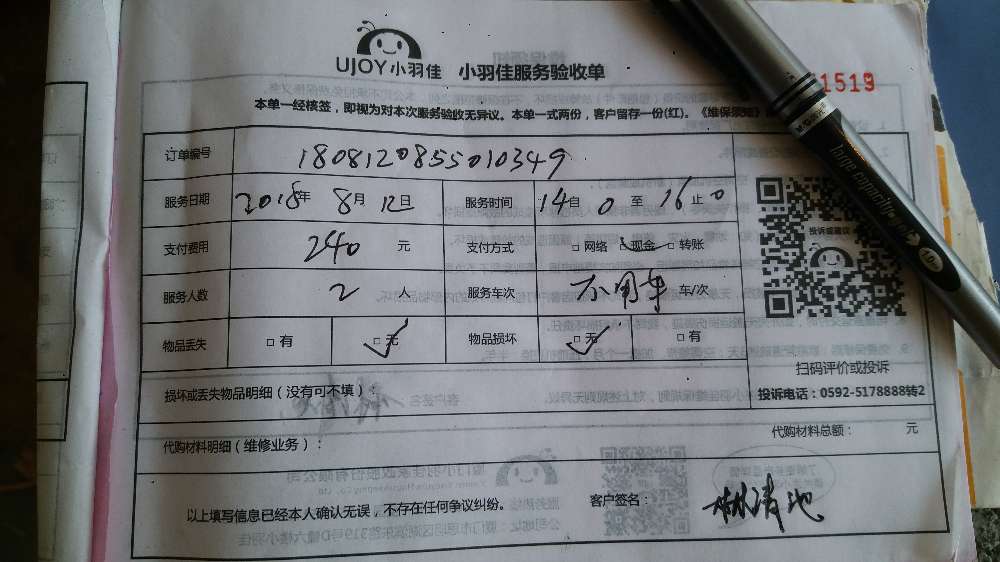 UJOY小羽佳 小羽佳服务验收单
1519
本单一经核签，即视为对本次服务验收无异议。本单一式两份，客户留存一份(红)。《维保须知》
订单编号 1808120855010349
服务日期 2018年 8月 12日 服务时间 14自 0 至 16止 0
支付费用 240 元 支付方式 □ 网络 ☑ 现金 □ 转账
服务人数 2 人 服务车次 不用车 车/次
物品丢失 □ 有 ☑ 无 物品损坏 ☑ 无 □ 有
投诉或建议
扫码评价或投诉
投诉电话：0592-5178888转2
损坏或丢失物品明细（没有可不填）：
代购材料明细（维修业务）： 代购材料总额： 元
以上填写信息已经本人确认无误，不存在任何争议纠纷。 客户签名： 林清池